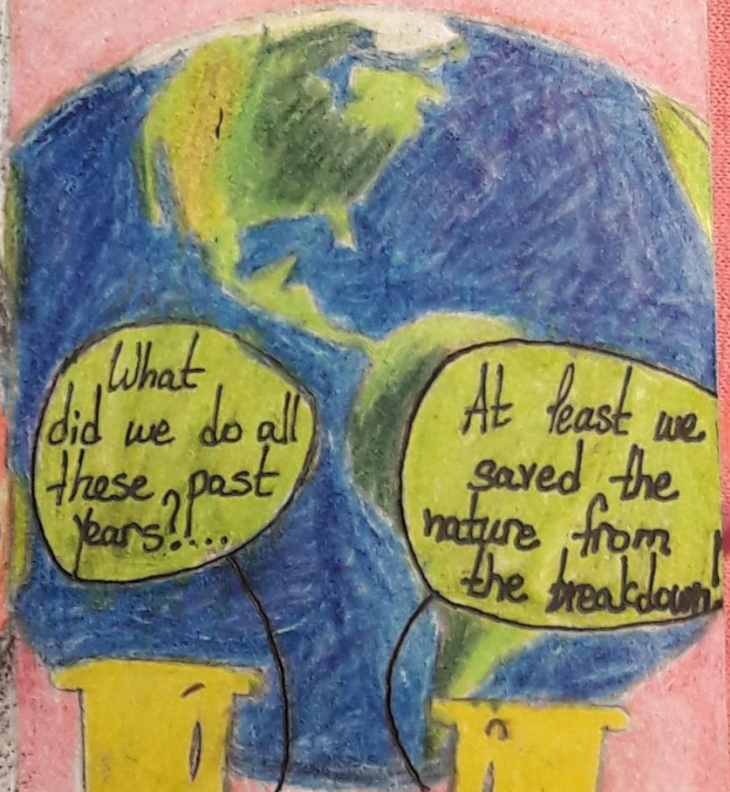 What
did we do all
these past
years?....
At least we
saved the
nature from
the breakdown!